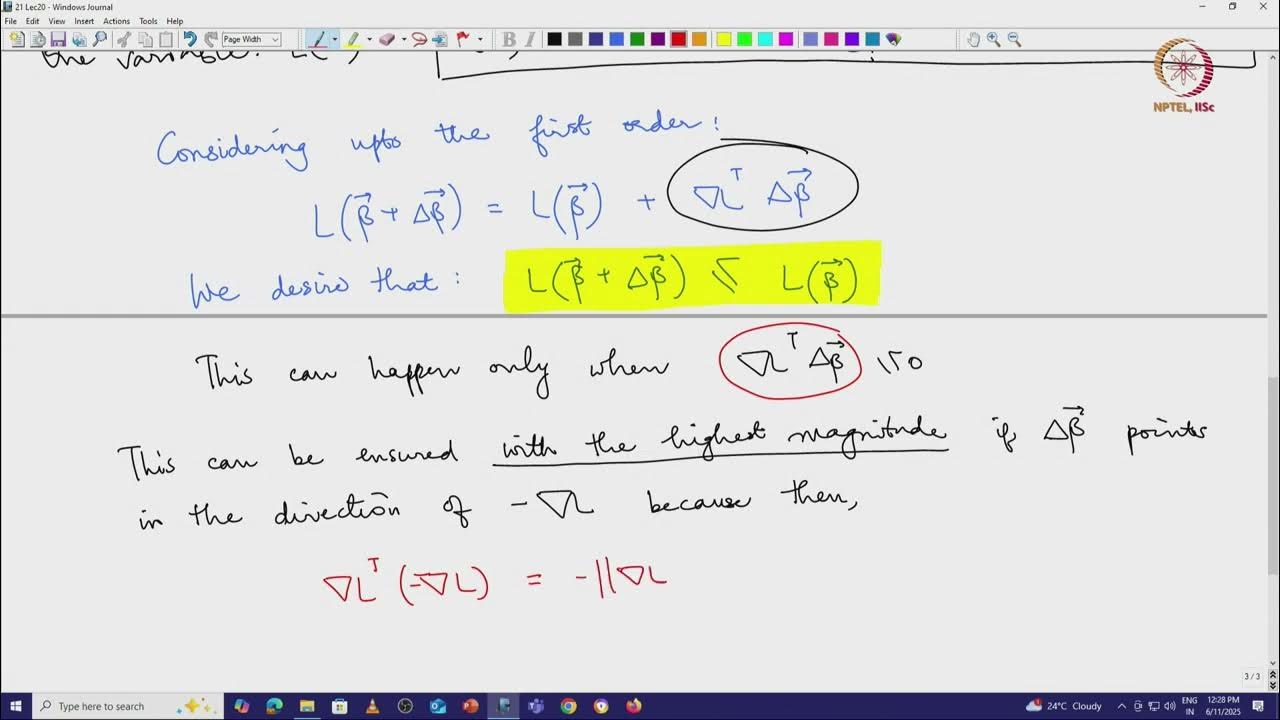 21 Lec20 - Windows Journal
File Edit View Insert Actions Tools Help
Page Width
B I
NPTEL, IISc
the variable. L( )
Considering upto the first order:
L(β⃗ + Δβ⃗) = L(β⃗) + ∇L^T Δβ⃗
We desire that: L(β⃗ + Δβ⃗) ≤ L(β⃗)
This can happen only when ∇L^T Δβ⃗ ≤ 0
This can be ensured with the highest magnitude if Δβ⃗ points
in the direction of -∇L because then,
∇L^T (-∇L) = -||∇L
3 / 3
Type here to search
24°C Cloudy
ENG
IN
12:28 PM
6/11/2025